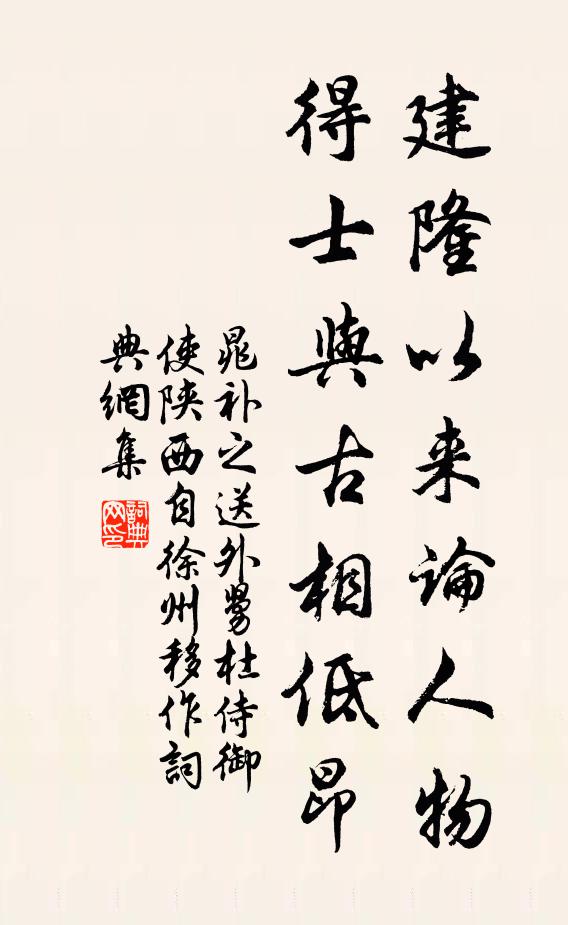 建隆以来論人物
得士與古相低昂
晁补之送外舅杜侍御
使陕西自徐州移作詞
典網集
詞典网印